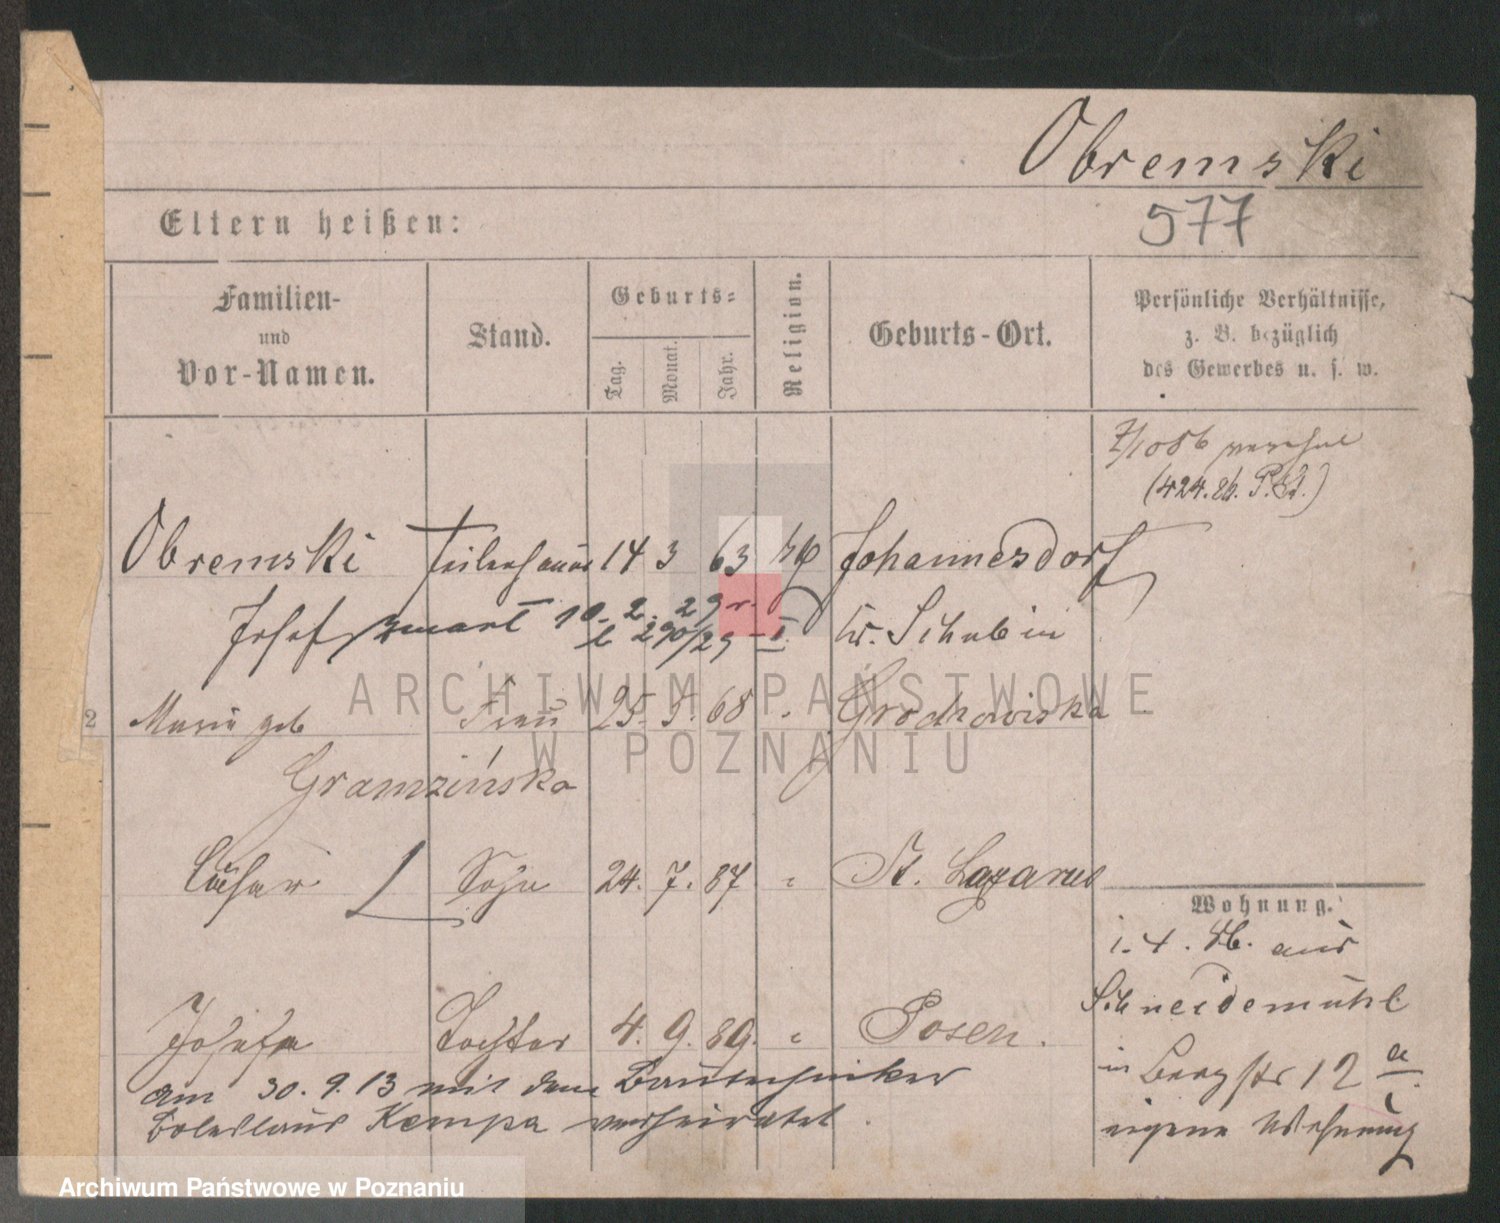 Obremski
577
Eltern heißen:
Familien-
und
Vor-Namen.
Stand.
Geburts-
Tag.
Monat.
Jahr.
Religion.
Geburts-Ort.
Persönliche Verhältnisse,
z. B. bezüglich
des Gewerbes u. s. w.
7/10 86
(424. 86. P. )
Obremski 14 3 63 Johannesdorf
Josef zmarł 10. 2. 29 r. Kr. Schubin
l 290/29 – I.
2 Marie geb Frau 25. 5. 68 " Grochowiska
Gramzińska
Cäsar Sohn 24. 7. 87 " St. Lazarus
Wohnung.
1. 4. 86. aus
Schneidemühl
in Bergstr 12 a
I
eigene Wohnung
Josefa Tochter 4. 9. 89. " Posen.
am 30. 9. 13 mit dem Bautechniker
Boleslaus Kempa verheiratet.
ARCHIWUM PAŃSTWOWE
W POZNANIU
Archiwum Państwowe w Poznaniu